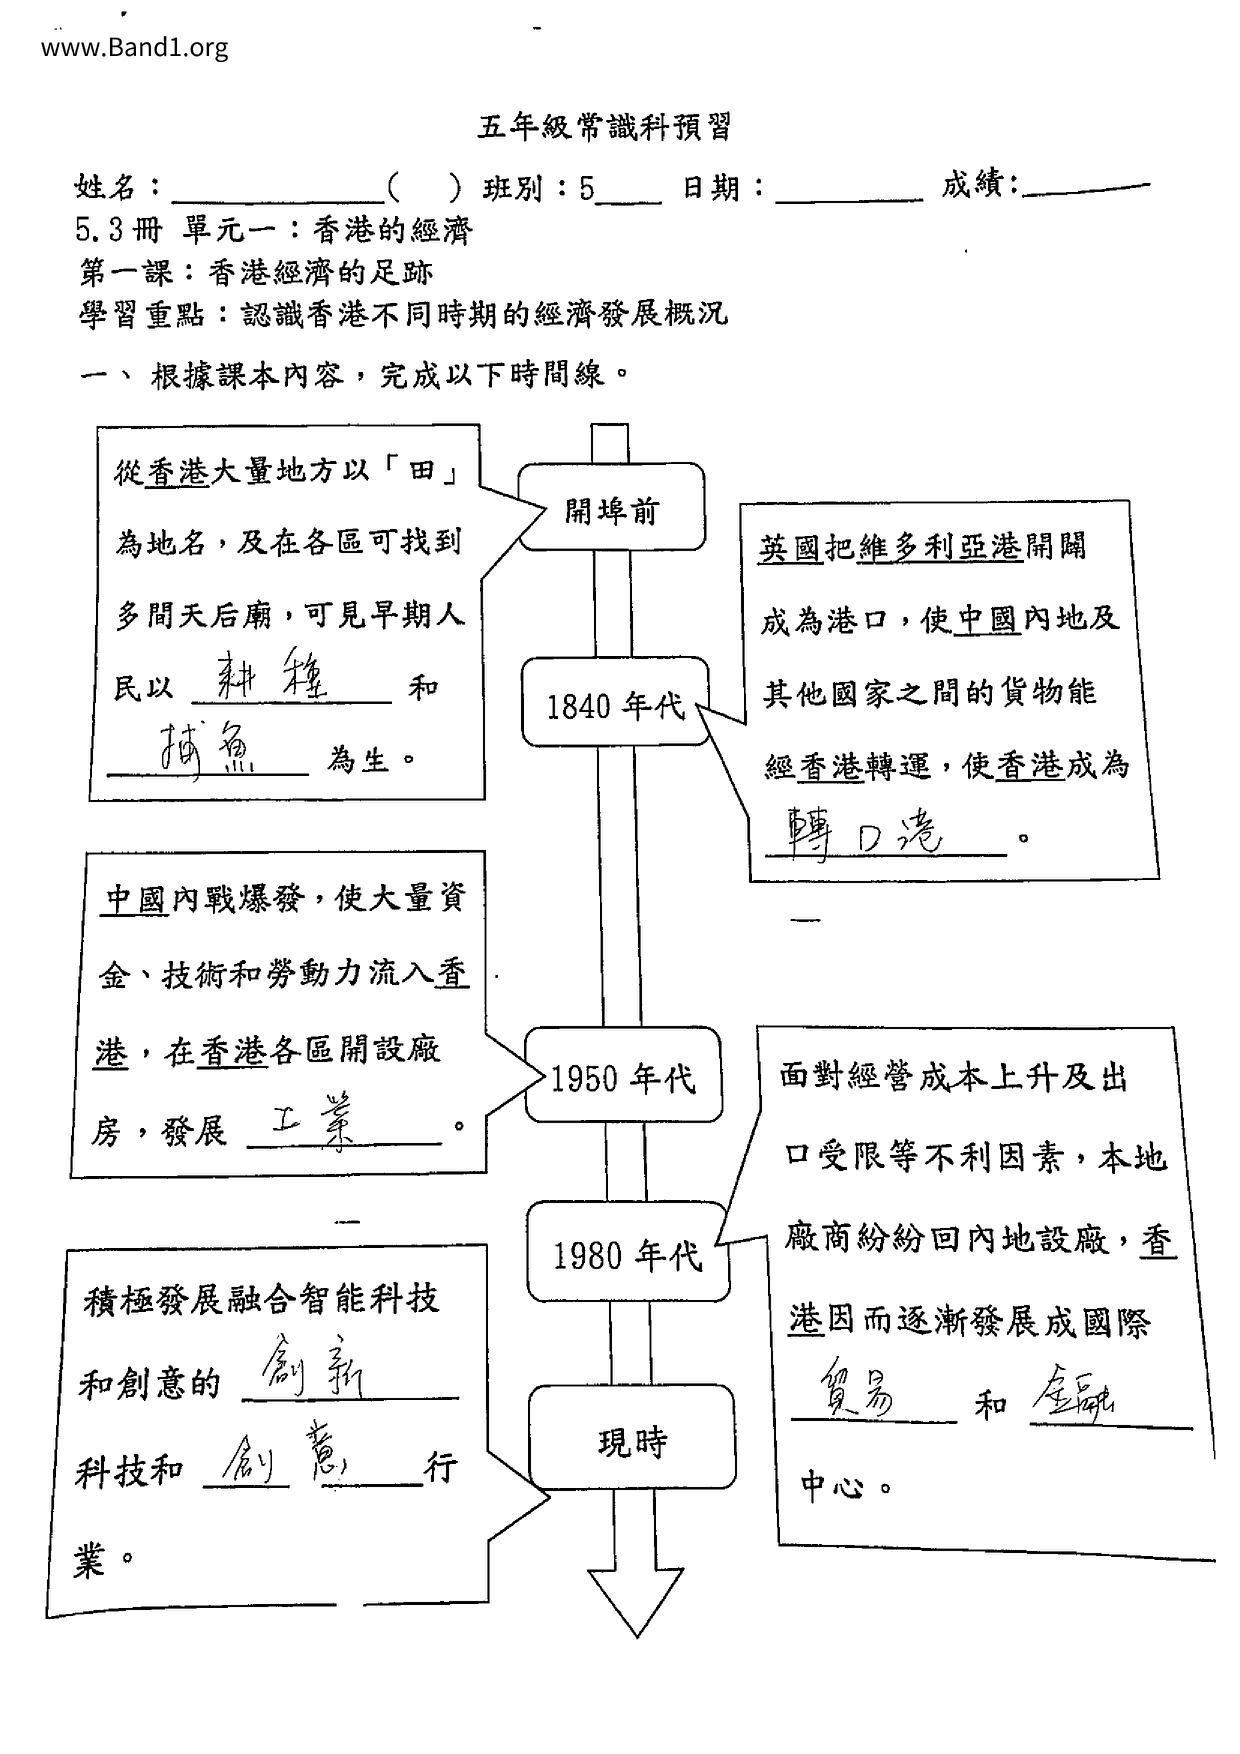 www.Band1.org
五年級常識科預習
姓名：____________( ) 班別：5____ 日期：_________ 成績:________
5.3冊 單元一：香港的經濟
第一課：香港經濟的足跡
學習重點：認識香港不同時期的經濟發展概況
一、根據課本內容，完成以下時間線。
從香港大量地方以「田」
為地名，及在各區可找到
多間天后廟，可見早期人
民以 耕種 和
捕魚 為生。
開埠前
英國把維多利亞港開闢
成為港口，使中國內地及
其他國家之間的貨物能
經香港轉運，使香港成為
轉口港。
1840 年代
中國內戰爆發，使大量資
金、技術和勞動力流入香
港，在香港各區開設廠
房，發展 工業 。
1950 年代
面對經營成本上升及出
口受限等不利因素，本地
廠商紛紛回內地設廠，香
港因而逐漸發展成國際
貿易 和 金融
中心。
1980 年代
積極發展融合智能科技
和創意的 創新
科技和 創意 行
業。
現時